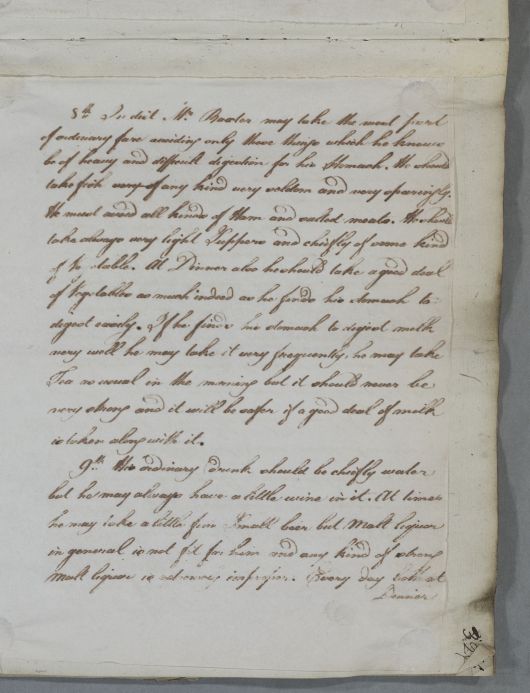 8th In diet Mr. Baxter may take the most part
of ordinary fare avoiding only those things which he knows
be of heavy and difficult digestion for his Stomach. He should
take fish soup of any kind very seldom and very sparingly.
He must avoid all kinds of Ham and salted meats. He should
take always very light Suppers and chiefly of some kind
of Vegetable. At Dinner also he should take a good deal
of Vegetables as much indeed as he finds his stomach to
digest easily. If he finds his stomach to digest milk
very well he may take it very frequently. he may take
Tea as usual in the morning but it should never be
very strong and it will be safer if a good deal of milk
is taken along with it.
9th His ordinary drink should be chiefly water
but he may always have a little wine in it. At times
he may take a little fine Small beer but Malt liquor
in general is not fit for him and any kind of strong
Malt liquor is extremely improper. Every day at
Dinner